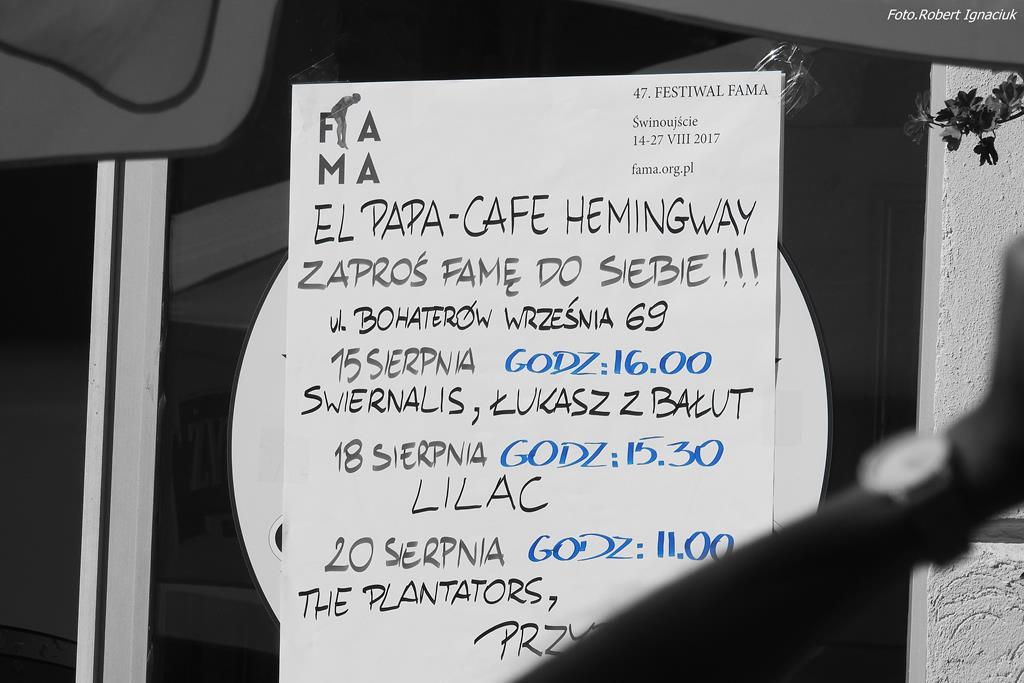 Foto.Robert Ignaciuk
47. FESTIWAL FAMA
Świnoujście
14-27 VIII 2017
fama.org.pl
FA
MA
EL PAPA-CAFE HEMINGWAY
ZAPROŚ FAMĘ DO SIEBIE!!!
ul. BOHATERÓW WRZEŚNIA 69
15 SIERPNIA GODZ:16.00
SWIERNALIS, ŁUKASZ Z BAŁUT
18 SIERPNIA GODZ:15.30
LILAC
20 SIERPNIA GODZ: 11.00
THE PLANTATORS,